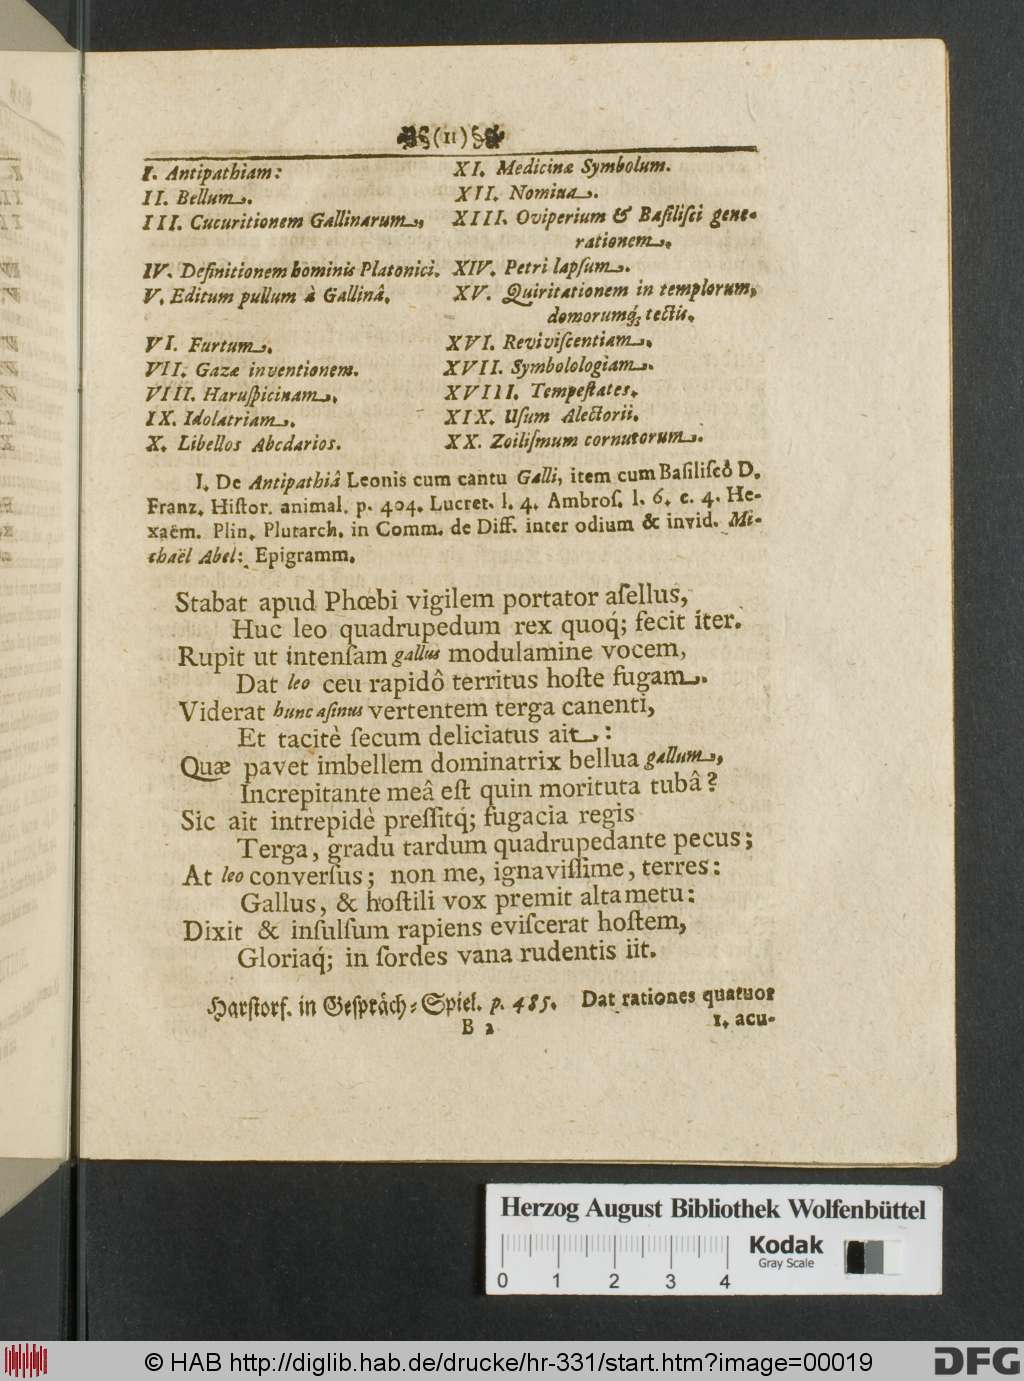 (11)
I. Antipathiam:
II. Bellum.
III. Cucuritionem Gallinarum,
IV. Definitionem hominis Platonici.
V. Editum pullum à Gallinâ.
VI. Furtum.
VII. Gazæ inventionem.
VIII. Haruſpicinam.
IX. Idolatriam.
X. Libellos Abcdarios.
XI. Medicinæ Symbolum.
XII. Nomina.
XIII. Oviperium & Baſiliſci gene-
rationem.
XIV. Petri lapſum.
XV. Quiritationem in templorum,
domorumq́; tectis.
XVI. Reviviſcentiam.
XVII. Symbolologiam.
XVIII. Tempeſtates.
XIX. Uſum Alectorii.
XX. Zoiliſmum cornutorum.
I. De Antipathiâ Leonis cum cantu Galli, item cum Baſiliſcô D.
Franz. Hiſtor. animal. p. 404. Lucret. l. 4. Ambroſ. l. 6. c. 4. He-
xaëm. Plin. Plutarch. in Comm. de Diff. inter odium & invid. Mi-
chaël Abel: Epigramm.
Stabat apud Phœbi vigilem portator aſellus,
Huc leo quadrupedum rex quoq́; fecit iter.
Rupit ut intenſam gallus modulamine vocem,
Dat leo ceu rapidô territus hoſte fugam.
Viderat hunc aſinus vertentem terga canenti,
Et tacitè ſecum deliciatus ait:
Quæ pavet imbellem dominatrix bellua gallum,
Increpitante meâ eſt quin morituta tubâ?
Sic ait intrepidè preſſitq́; fugacia regis
Terga, gradu tardum quadrupedante pecus;
At leo converſus; non me, ignaviſſime, terres:
Gallus, & hoſtili vox premit alta metu:
Dixit & inſulſum rapiens eviſcerat hoſtem,
Gloriaq́; in ſordes vana rudentis iit.
Harſtorf. in Geſpräch-Spiel. p. 485. Dat rationes quatuor
B 2
1. acu-
Herzog August Bibliothek Wolfenbüttel
Kodak
Gray Scale
0 1 2 3 4
© HAB http://diglib.hab.de/drucke/hr-331/start.htm?image=00019
DFG